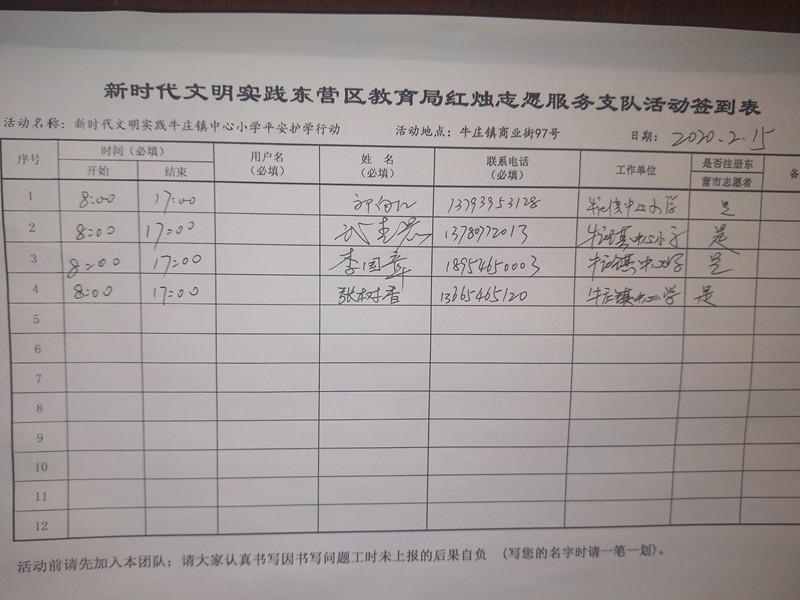 新时代文明实践东营区教育局红烛志愿服务支队活动签到表
活动名称：新时代文明实践牛庄镇中心小学平安护学行动 活动地点：牛庄镇商业街97号 日期：2020.2.15
序号 时间（必填） 用户名（必填） 姓名（必填） 联系电话（必填） 工作单位 是否注册东营市志愿者 备
开始 结束
1 8:00 17:00 13793953128 牛庄镇中心小学 是
2 8:00 17:00 13780772013 牛庄镇中心小学 是
3 8:00 17:00 李国章 18954650003 牛庄镇中心小学 是
4 8:00 17:00 张树香 13665465120 牛庄镇中心小学 是
5
6
7
8
9
10
11
12
活动前请先加入本团队；请大家认真书写因书写问题工时未上报的后果自负 （写您的名字时请一笔一划）。